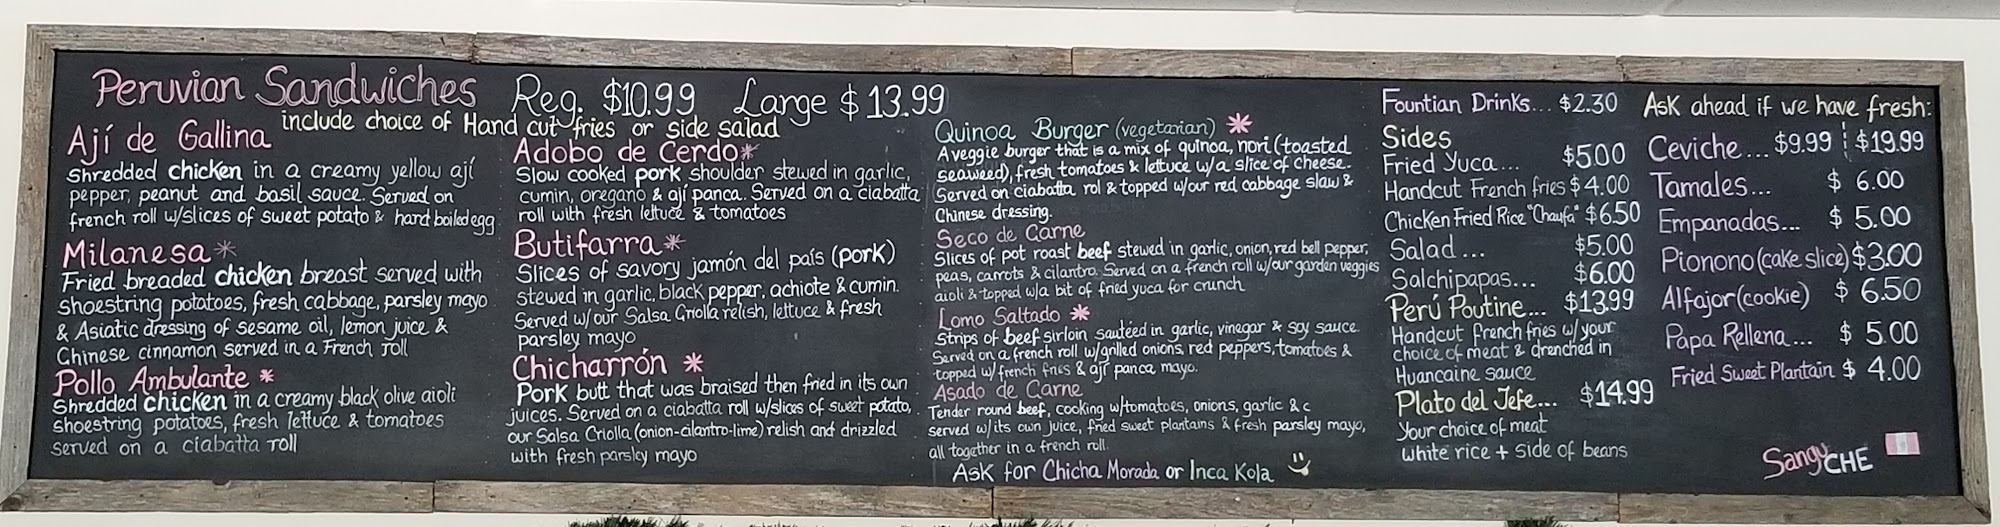 Peruvian Sandwiches Reg. $10.99 Large $13.99
include choice of Hand cut fries or side salad
Ají de Gallina
Shredded chicken in a creamy yellow ají
pepper, peanut and basil sauce. Served on
french roll w/slices of sweet potato & hard boiled egg
Milanesa*
Fried breaded chicken breast served with
shoestring potatoes, fresh cabbage, parsley mayo
& Asiatic dressing of sesame oil, lemon juice &
Chinese cinnamon served in a French roll
Pollo Ambulante *
Shredded chicken in a creamy black olive aioli
shoestring potatoes, fresh lettuce & tomatoes
served on a ciabatta roll
Adobo de Cerdo*
Slow cooked pork shoulder stewed in garlic,
cumin, oregano & ají panca. Served on a ciabatta
roll with fresh lettuce & tomatoes
Butifarra*
Slices of savory jamón del país (pork)
stewed in garlic, black pepper, achiote & cumin.
Served w/our Salsa Criolla relish, lettuce & fresh
parsley mayo
Chicharrón *
Pork butt that was braised then fried in its own
juices. Served on a ciabatta roll w/slices of sweet potato,
our Salsa Criolla (onion-cilantro-lime) relish and drizzled
with fresh parsley mayo
Quinoa Burger (vegetarian) *
A veggie burger that is a mix of quinoa, nori (toasted
seaweed), fresh tomatoes & lettuce w/a slice of cheese.
Served on ciabatta rol & topped w/our red cabbage slaw &
Chinese dressing.
Seco de Carne
Slices of pot roast beef stewed in garlic, onion, red bell pepper,
peas, carrots & cilantro. Served on a french roll w/our garden veggies
aioli & topped w/a bit of fried yuca for crunch
Lomo Saltado *
Strips of beef sirloin sautéed in garlic, vinegar & soy sauce.
Served on a french roll w/grilled onions, red peppers, tomatoes &
topped w/french fries & ají panca mayo.
Asado de Carne
Tender round beef, cooking w/tomatoes, onions, garlic & c
served w/its own juice, fried sweet plantains & fresh parsley mayo,
all together in a french roll.
Ask for Chicha Morada or Inca Kola
Fountian Drinks... $2.30
Sides
Fried Yuca... $5.00
Handcut French fries $4.00
Chicken Fried Rice "Chaufa" $6.50
Salad ... $5.00
Salchipapas... $6.00
Perú Poutine... $13.99
Handcut french fries w/ your
choice of meat & drenched in
Huancaine sauce
Plato del Jefe... $14.99
Your choice of meat
white rice + side of beans
Ask ahead if we have fresh:
Ceviche ... $9.99 | $19.99
Tamales... $ 6.00
Empanadas... $ 5.00
Pionono (cake slice) $3.00
Alfajor (cookie) $ 6.50
Papa Rellena... $ 5.00
Fried Sweet Plantain $ 4.00
SanguCHE